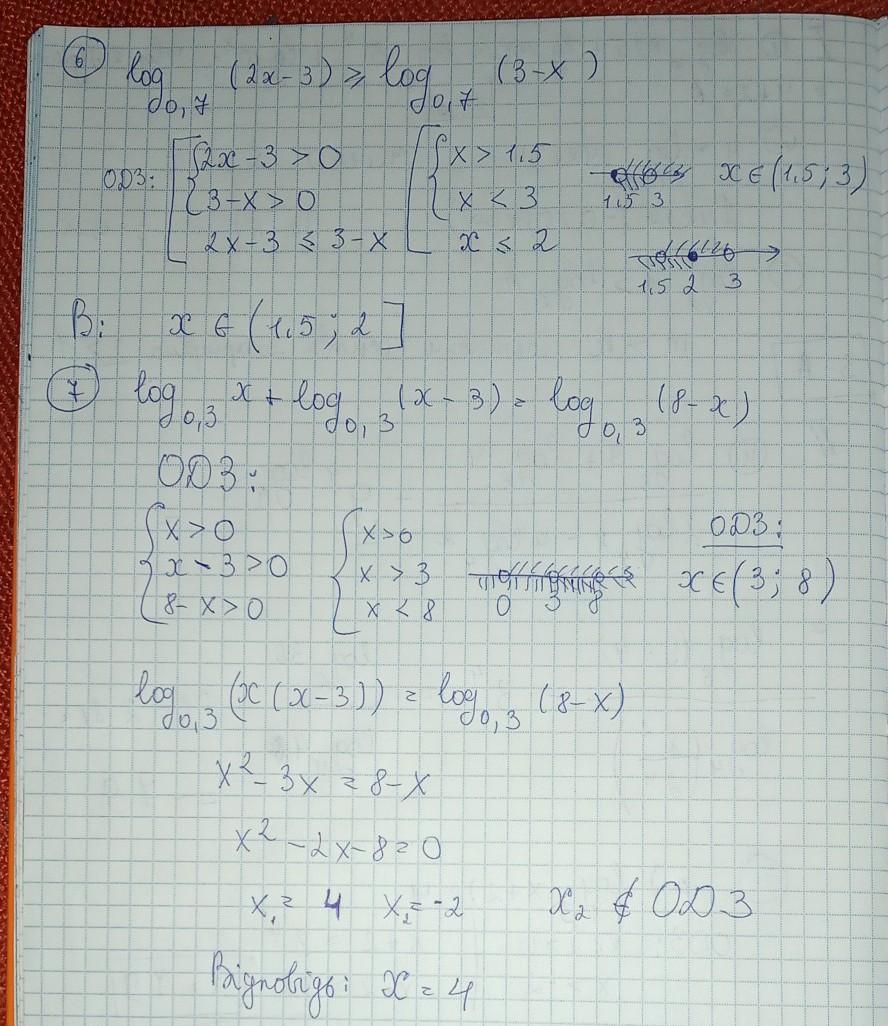 6 log₀,₇ (2x-3) ≥ log₀,₇ (3-x)
ОДЗ: [{2x-3>0 [{x>1.5 1.5 3 x∈(1.5; 3)
3-x>0 x<3
2x-3 ≤ 3-x x ≤ 2 1.5 2 3
В: x ∈ (1.5; 2]
7 log₀,₃ x + log₀,₃ (x-3) = log₀,₃ (8-x)
ОДЗ:
{x>0 {x>0 ОДЗ:
x-3>0 x>3 0 3 8 x∈(3; 8)
8-x>0 x<8
log₀,₃ (x(x-3)) = log₀,₃ (8-x)
x²-3x = 8-x
x²-2x-8=0
x₁= 4 x₂=-2 x₂ ∉ ОДЗ
Відповідь: x = 4